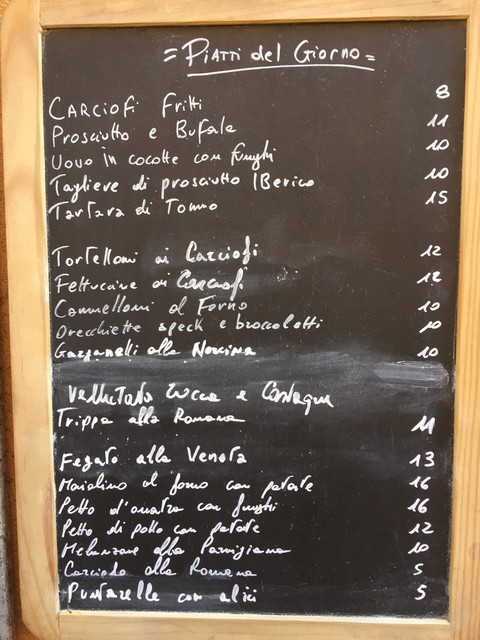 = PIATTI del GIORNO =
CARCIOFI FRITTI 8
Prosciutto e Bufala 11
Uovo in cocotte con funghi 10
Tagliere di prosciutto IBerico 10
Tartara di Tonno 15
Tortelloni ai Carciofi 12
Fettuccine ai Carciofi 12
Cannelloni al Forno 10
Orecchiette speck e broccoletti 10
Garganelli alla Norcina 10
Vellutata zucca e Castagna
Trippa alla Romana 11
Fegato alla Veneta 13
Maialino al forno con patate 16
Petto d'anatra con funghi 16
Petto di pollo con patate 12
Melanzane alla Parmigiana 10
Carciofo alla Romana 5
Puntarelle con alici 5